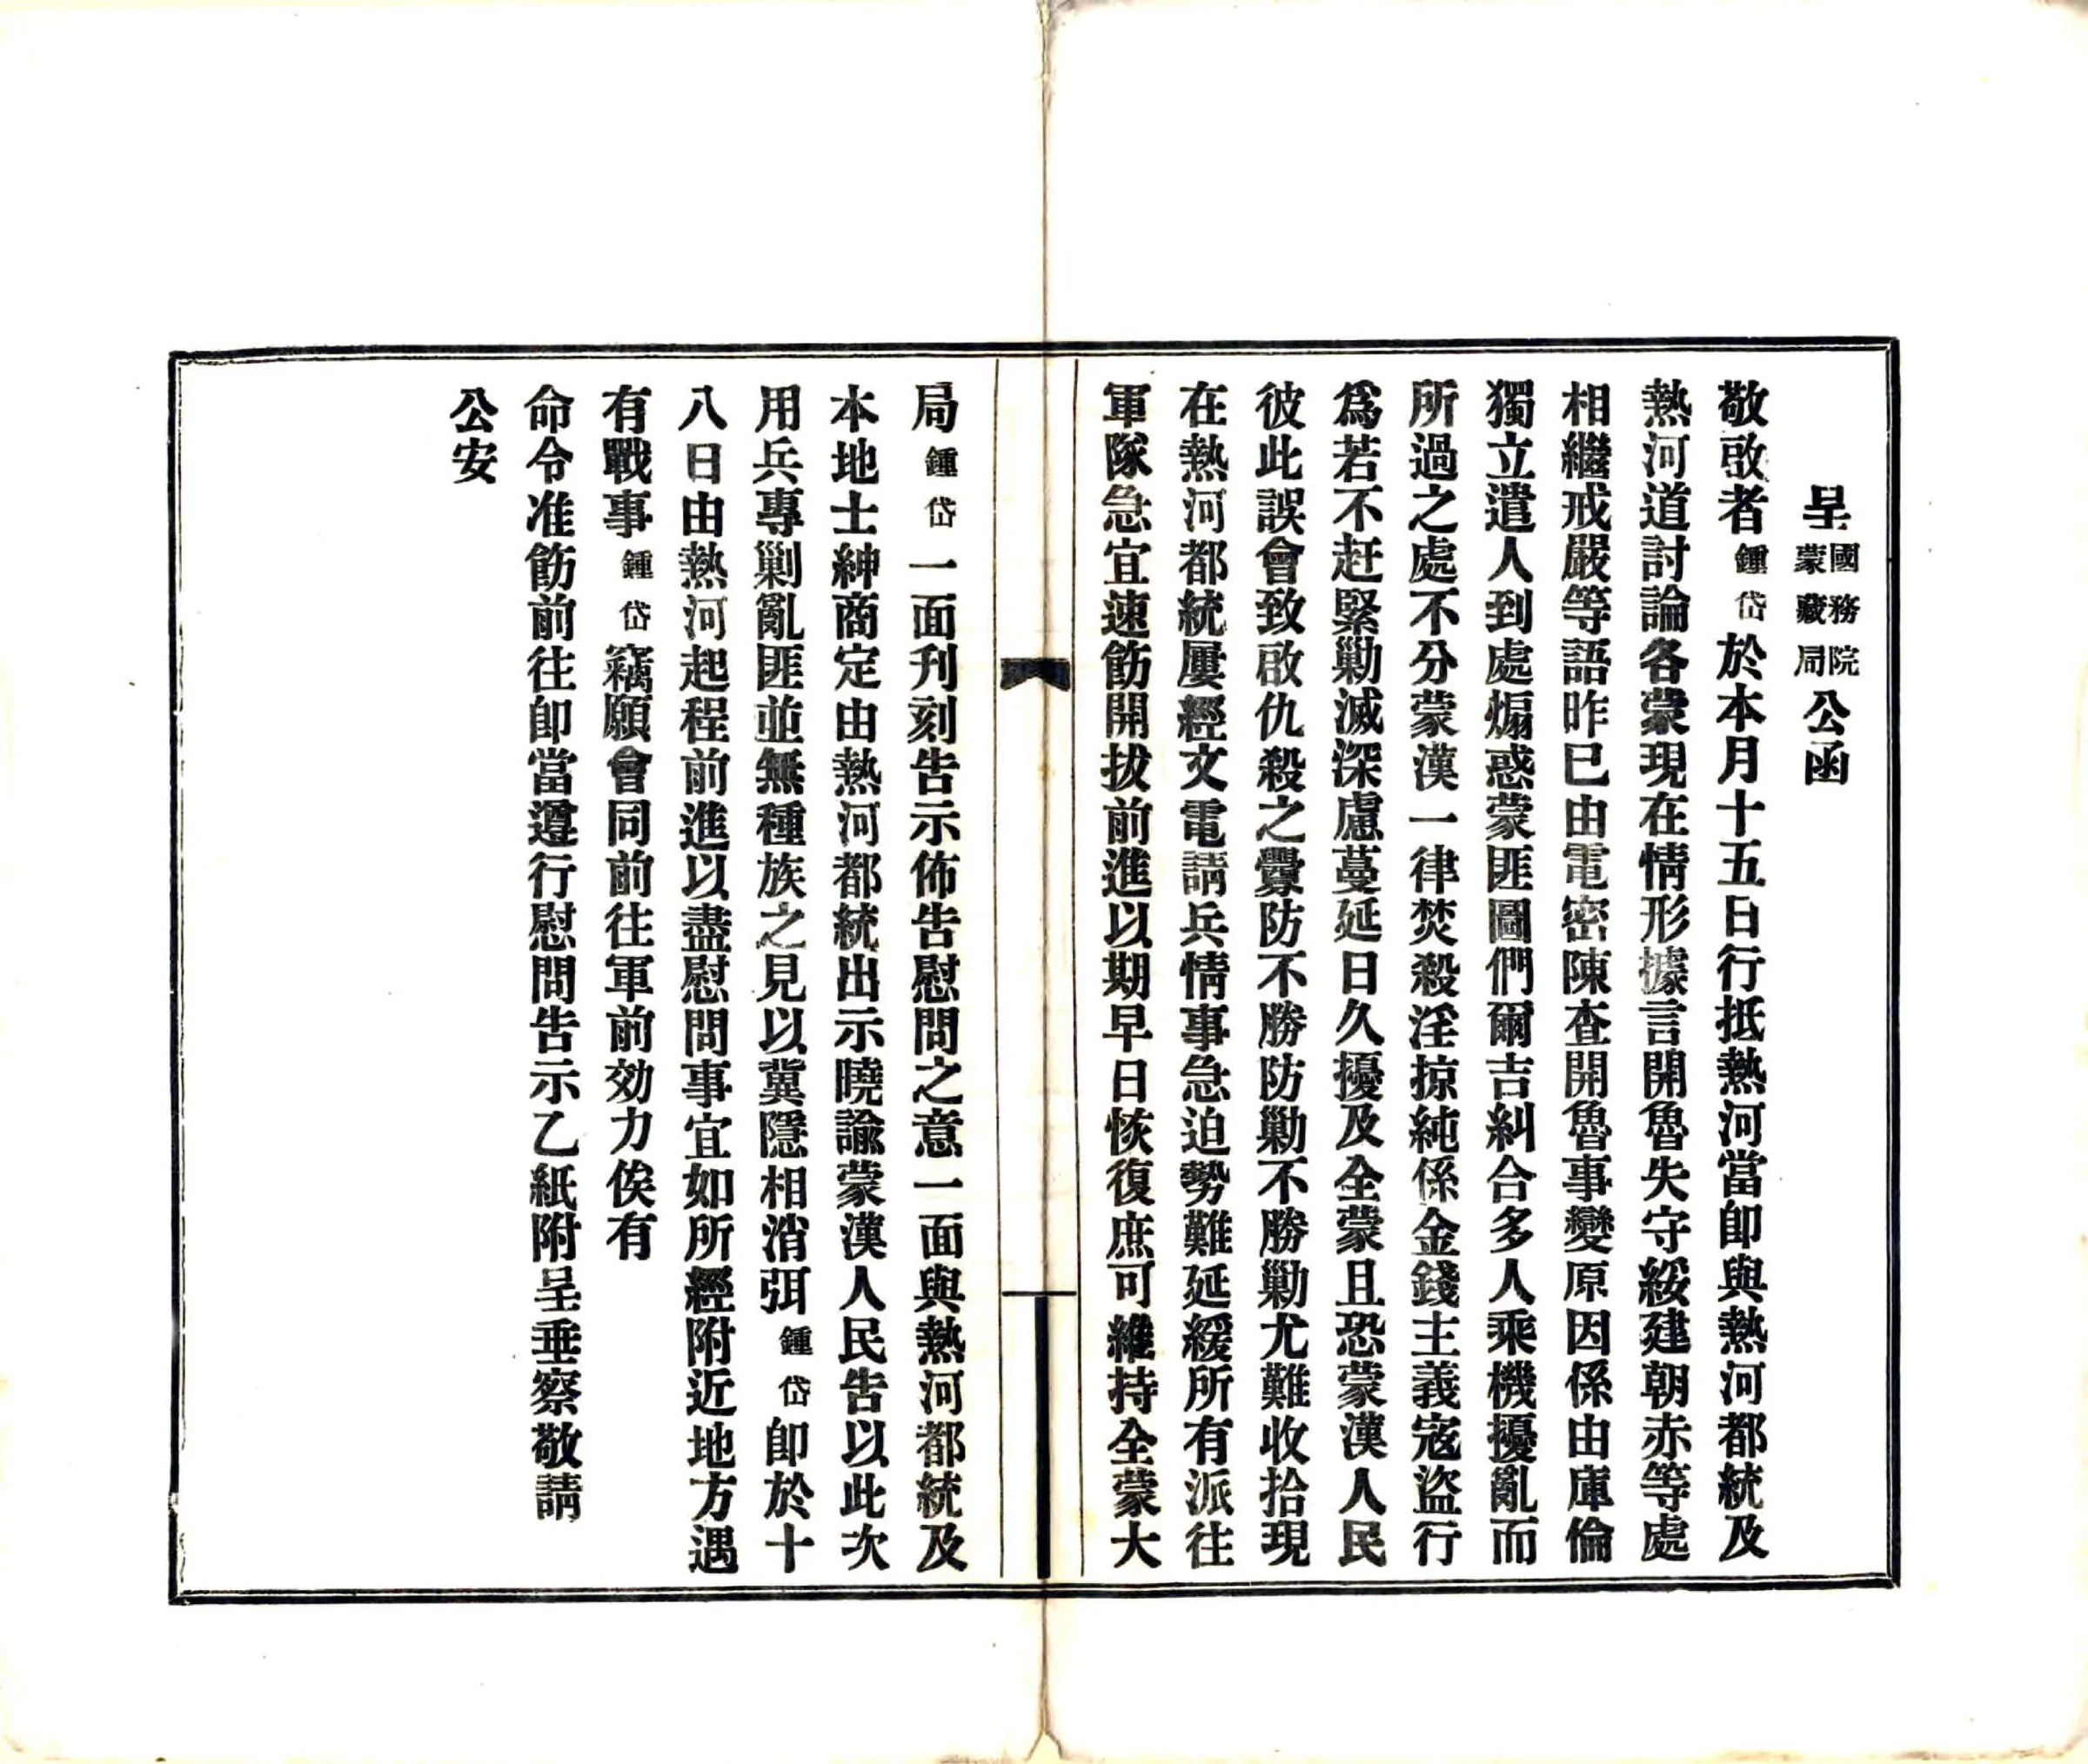 呈國務院蒙藏局公函
敬啟者鍾岱於本月十五日行抵熱河當卽與熱河都統及
熱河道討論各蒙現在情形據言開魯失守綏建朝赤等處
相繼戒嚴等語昨已由電密陳查開魯事變原因係由庫倫
獨立遣人到處煽惑蒙匪圖們爾吉糾合多人乘機擾亂而
所過之處不分蒙漢一律焚殺淫掠純係金錢主義寇盜行
爲若不赶緊勦滅深慮蔓延日久擾及全蒙且恐蒙漢人民
彼此誤會致啟仇殺之釁防不勝防勦不勝勦尤難收拾現
在熱河都統屢經文電請兵情事急迫勢難延緩所有派往
軍隊急宜速飭開拔前進以期早日恢復庶可維持全蒙大
局鍾岱一面刋刻告示佈告慰問之意一面與熱河都統及
本地士紳商定由熱河都統出示曉諭蒙漢人民告以此次
用兵專剿亂匪並無種族之見以冀隱相消弭鍾岱卽於十
八日由熱河起程前進以盡慰問事宜如所經附近地方遇
有戰事鍾岱竊願會同前往軍前効力俟有
命令准飭前往卽當遵行慰問告示乙紙附呈垂察敬請
公安